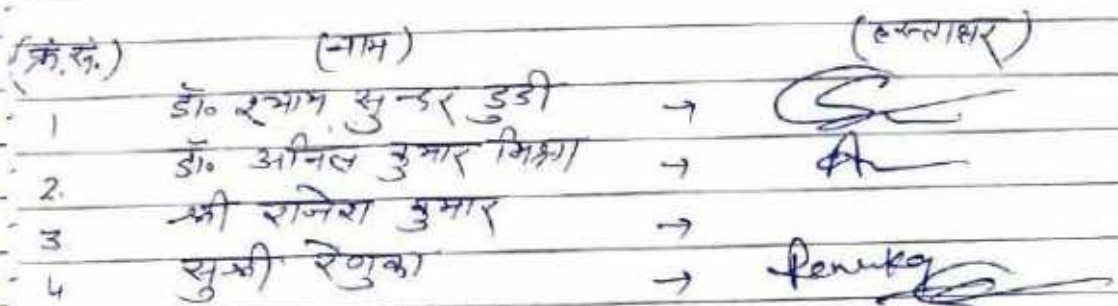 (क्रं.सं.) (नाम) (हस्ताक्षर)
1 डॉ० श्याम सुन्डर डुडी →
2. डॉ० अनिल कुमार मिश्रा →
3 श्री राजेश कुमार →
4 सुश्री रेणुका → Renuka